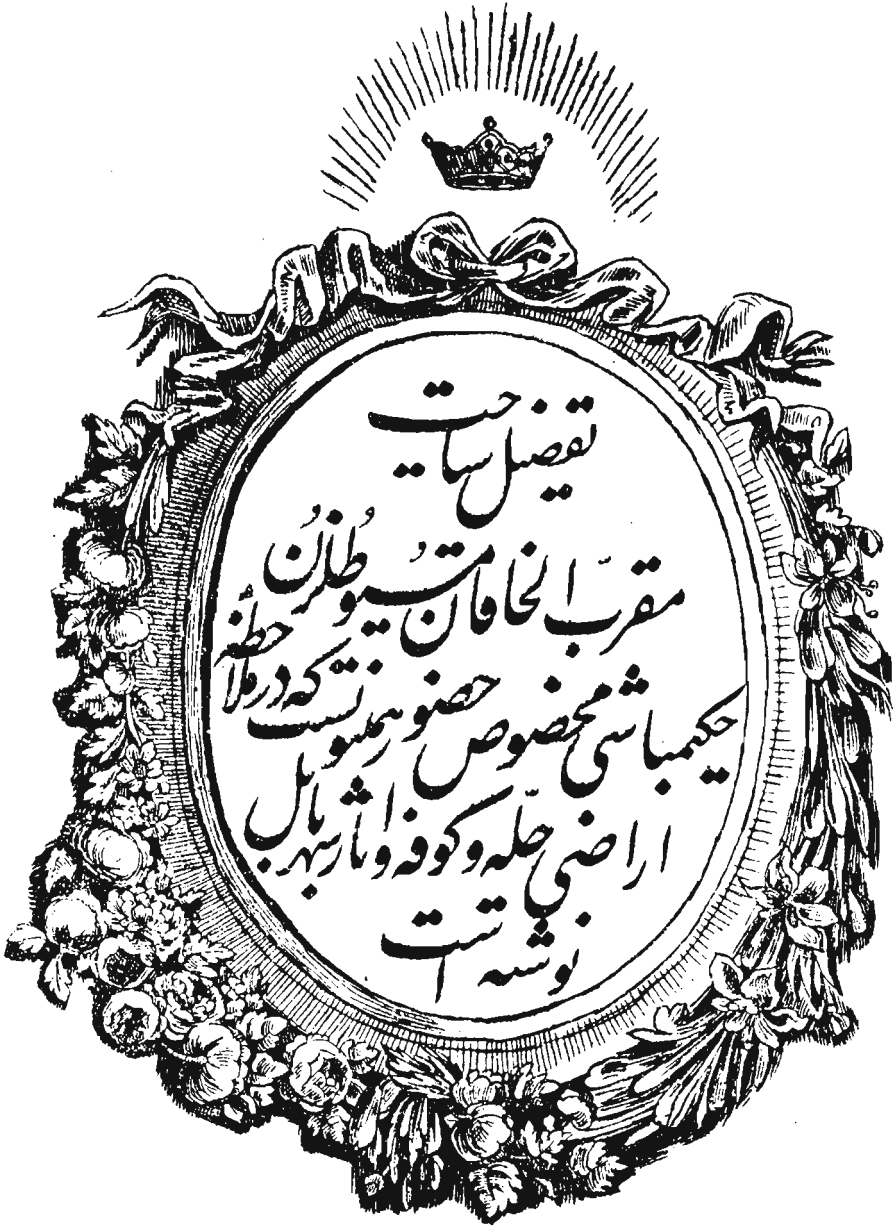 تفصیل سیاحت
مقرّب الخاقان مُسیو طُلُزُن
حکیمباشی مخصوص حضور همیونست که در ملاحظهٔ
اراضی حلّه و کوفه و اثار شهر بابل
نوشته است